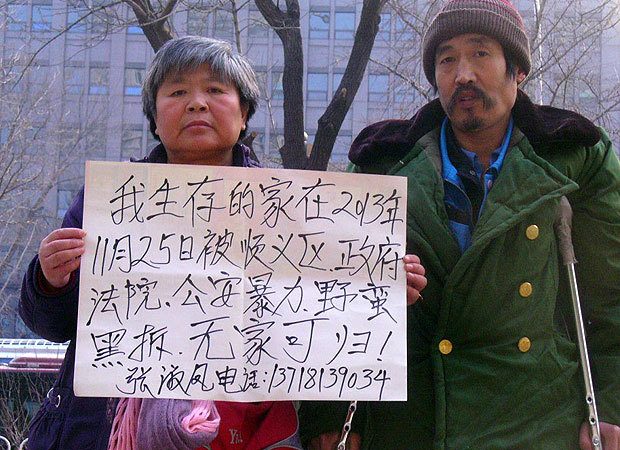 我生存的家在2013年
11月25日被顺义区.政府
法院、公安暴力.野蛮
黑拆.无家可归!
张淑凤电话:13718139034